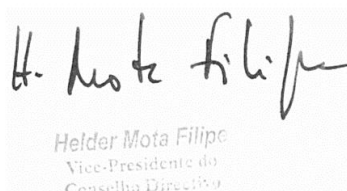 H. Mota Filipe
Helder Mota Filipe
Vice-Presidente do
Conselho Directivo